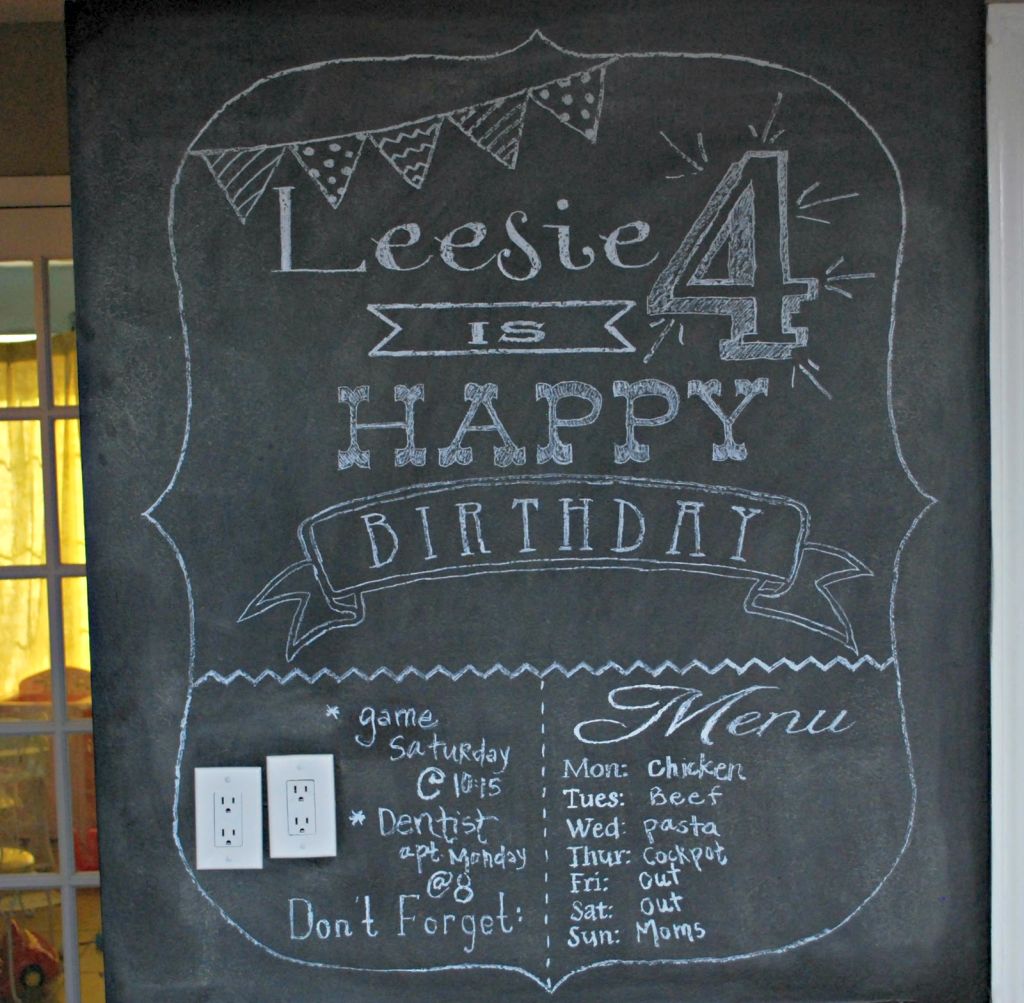 Leesie 4
IS
HAPPY
BIRTHDAY
* game
Saturday
@ 10:15
* Dentist
apt Monday
@8
Don't Forget:
Menu
Mon: Chicken
Tues: Beef
Wed: pasta
Thur: Cockpot
Fri: out
Sat: out
Sun: Moms